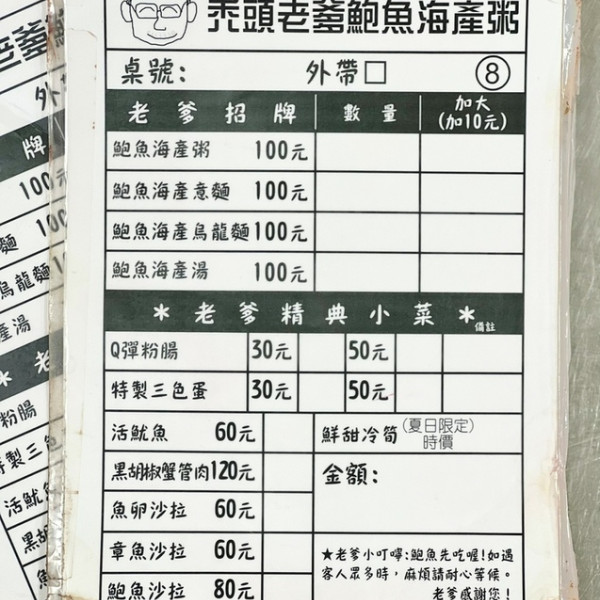 禿頭老爹鮑魚海產粥
桌號: 外帶□ ⑧
老爹招牌 數量 加大(加10元)
鮑魚海產粥 100元
鮑魚海產意麵 100元
鮑魚海產烏龍麵 100元
鮑魚海產湯 100元
*老爹精典小菜* 備註
Q彈粉腸 30元 50元
特製三色蛋 30元 50元
活魷魚 60元
鮮甜冷筍(夏日限定)時價
黑胡椒蟹管肉 120元
金額:
魚卵沙拉 60元
章魚沙拉 60元
鮑魚沙拉 80元
★老爹小叮嚀:鮑魚先吃喔!如遇
客人眾多時，麻煩請耐心等候。
老爹感謝您!